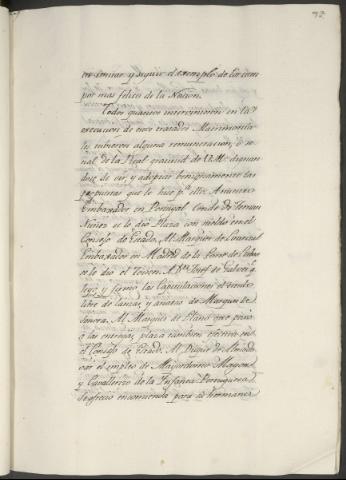 en imitar y seguir el exemplo de los tiem
pos mas felices de la Nacion.
Todos quantos intervinieron en la
execucion de estos tratados Matrimonia
les tubieron alguna remuneracion, ó se
ñal de la Real gratitud de V.M. dignan
dose de oir, y adoptar benignamente las
propuestas que le hice p.ª ello. A nuestro
Embaxador en Portugal Conde de Fernan
Nuñez se le dio Plaza con sueldo en el
Consejo de Estado. Al Marques de Louriçal
Embaxador en Madrid de la Corte de Lisboa
se le dio el Toison. A D.n Josef de Galvez q.
leyó, y firmó las Capitulaciones el titulo
libre de lanzas, y anatas de Marques de
Sonora. Al Marques de Llano que pasó
á las entregas, plaza tambien efectiva en
el Consejo de Estado. Al Duque de Almodo
var el empleo de Mayordomo Mayor
y Cavallerizo de la Infanta Portuguesa.
Se ofreció encomienda para la hermana